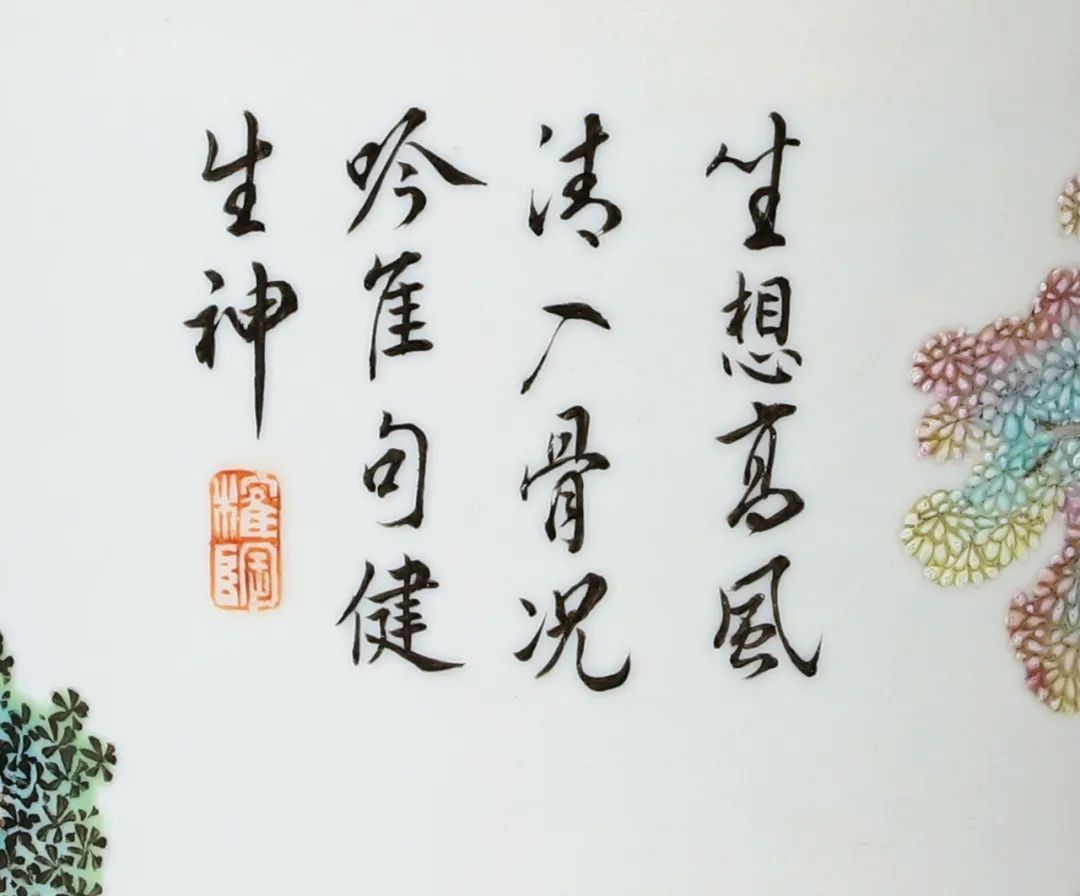 坐想高風
清入骨况
吟佳句健
生神
榷陶